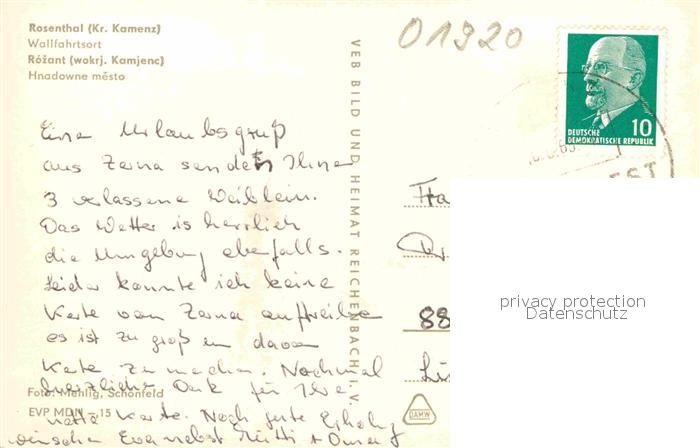 Rosenthal (Kr. Kamenz)
Wallfahrtsort
Róžant (wokrj. Kamjenc)
Hnadowne město
01920
VEB BILD UND HEIMAT REICHENBACH i. V.
10
DEUTSCHE
DEMOKRATISCHE REPUBLIK
Einen Urlaubsgruß
aus Zerna senden Ihnen
3 verlassene Weiblein.
Das Wetter is herrlich
die Umgebung ebenfalls.
Leider konnte ich keine
Karte von Zerna auftreiben
es ist zu groß um davon
Karte zu machen. Nochmal
herzlichen Dank für Ihre
nette Karte. Noch gute Erholung
wünschen Eva nebst Mutti + Oma
88
privacy protection
Datenschutz
Foto: Mehlig, Schönfeld
EVP MDN -15
DAMW